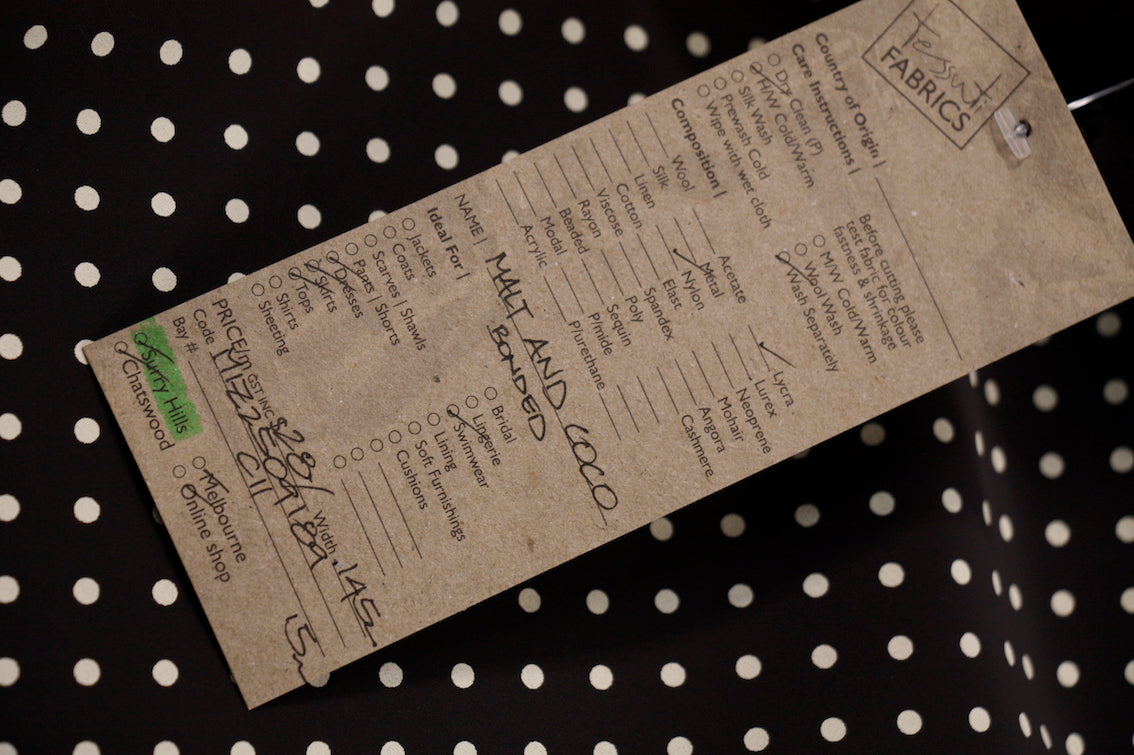 Tessuti
FABRICS
Country of Origin |
Care Instructions |
Dry Clean (P)
H/W Cold/Warm
Silk Wash
Prewash Cold
Wipe with wet cloth
Before cutting please
test fabric for colour
fastness & shrinkage
M/W Cold/Warm
Wool Wash
Wash Separately
Composition |
Wool
Silk
Linen
Cotton
Viscose
Rayon
Beaded
Modal
Acrylic
Acetate
Metal
Nylon
Elast
Spandex
Poly
Sequin
P/mide
P/urethane
Lycra
Lurex
Neoprene
Mohair
Angora
Cashmere
NAME | MALT AND COCO
BONDED
Ideal For |
Jackets
Coats
Scarves | Shawls
Pants | Shorts
Dresses
Skirts
Tops
Shirts
Sheeting
Bridal
Lingerie
Swimwear
Lining
Soft Furnishings
Cushions
PRICE/m GST INC $28/ Width 145
Code
Bay # C11 15m
Surry Hills
Chatswood
Melbourne
Online shop